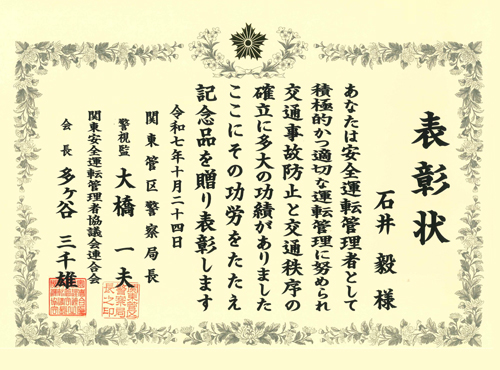 表彰状
石井 毅 様
あなたは安全運転管理者として
積極的かつ適切な運転管理に努められ
交通事故防止と交通秩序の
確立に多大の功績がありました
ここにその功労をたたえ
記念品を贈り表彰します
令和七年十月二十四日
関東管区警察局長
警視監 大橋 一夫
関東安全運転管理者協議会連合会
会長 多ケ谷 三千雄